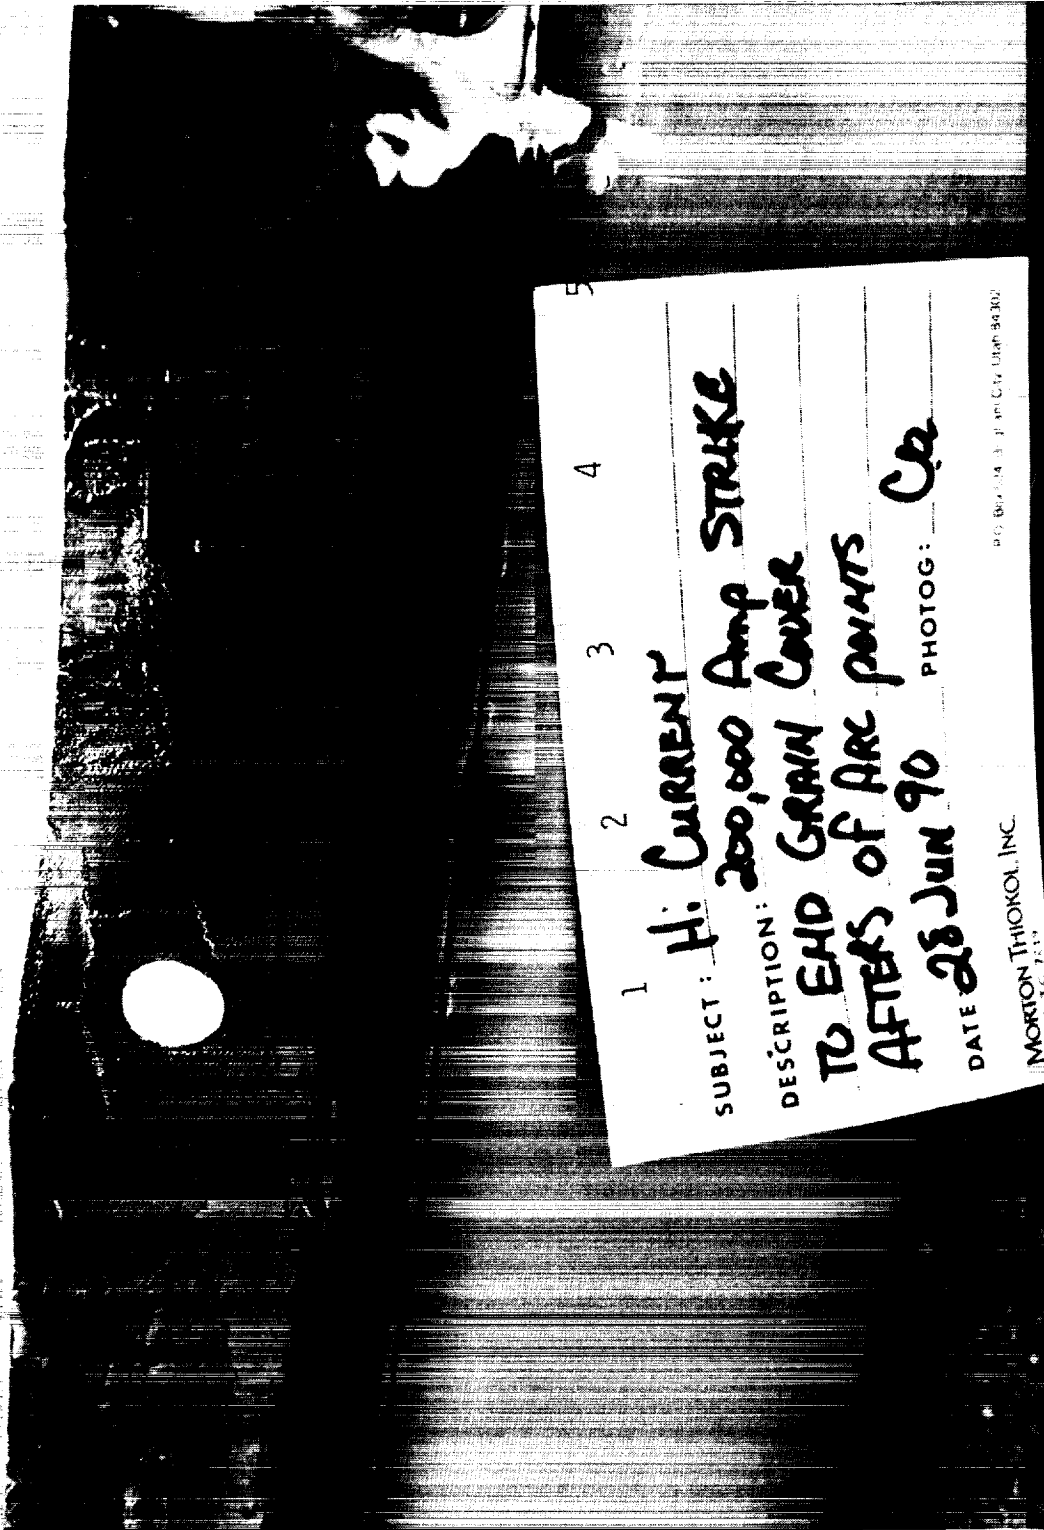 1 2 3 4 5
SUBJECT: Hi Current
DESCRIPTION: 200,000 Amp STRIKE
TO END GRAIN COVER
AFTERS OF ARC POINTS
DATE 28 JUN 90 PHOTOG:
MORTON THIOKOL, INC.
Utah 84302